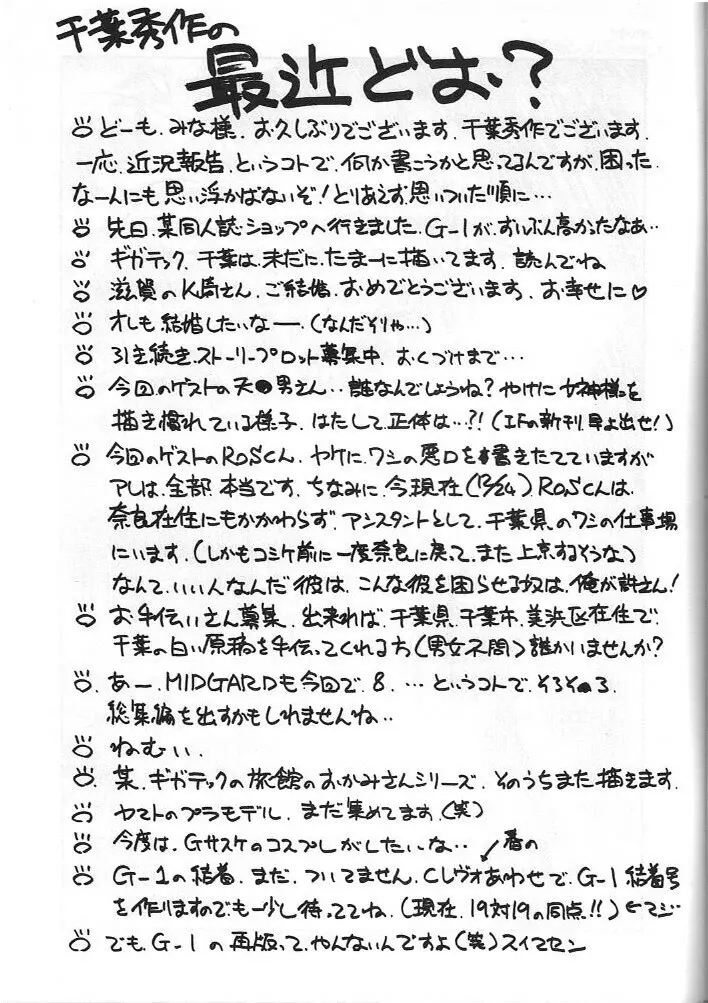 千葉秀作の
最近どお?
どーも、みな様、お久しぶりでございます、千葉秀作でございます、
一応、近況報告、というコトで、何か書こうかと思ってるんですが、困った、
なーんにも思い浮かばないぞ!とりあえず思いついた順に…
先日、某同人誌ショップへ行きました、G-1が、ずいぶん高かったなぁ‥
ギガテック、千葉は、未だに、たまーに描いてます、読んでね
滋賀のK崎さん、ご結婚、おめでとうございます、お幸せに♡
オレも結婚したいなー、(なんだそりゃ…)
引き続き、ストーリープロット募集中、おくづけまで…
今回のゲストの天●男さん‥誰なんでしょうね?やけに女神様を
描き慣れている様子、はたして、正体は…?!(IFの新刊、早よ出せ!)
今回のゲストのROSくん、ヤケに、ワシの悪口を書きたてていますが
アレは、全部、本当です、ちなみに、今現在(12/24)、ROSくんは、
奈良在住にもかかわらず、アシスタントとして、千葉県、のワシの仕事場
にいます、(しかもコミケ前に一度奈良に戻って、また上京するそうな)
なんて、いい人なんだ彼は、こんな彼を困らせる奴は、俺が許さん!
お手伝いさん募集、出来れば、千葉県、千葉市、美浜区在住で、
千葉の白い原稿を手伝ってくれる方(男女不問)誰かいませんか?
あー、MIDGARDも今回で、8、…というコトで、そろそろ、
総集編を出すかもしれませんね‥
ねむい、
某、ギガテックの旅館のおかみさんシリーズ、そのうちまた描きます、
ヤマトのプラモデル、まだ集めてます、(笑)
今度は、Gサスケのコスプレがしたいな‥
春の
G-1の結着、まだ、ついてません、Cレヴォあわせで、G-1結着号
を作りますのでも一少し待っててね、(現在、19対19の同点!!)←マジ
でも、G-1の再版って、やんないんですよ(笑)スイマセン